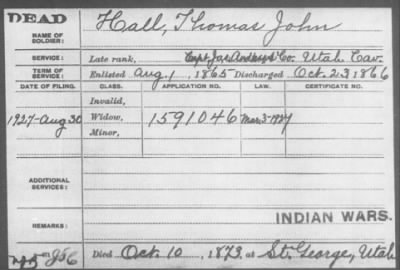 DEAD
NAME OF SOLDIER: Hall, Thomas John
SERVICE: Late rank, Capt. Jas Andrus Co. Utah Cav.
TERM OF SERVICE: Enlisted Aug. 1, 1865 Discharged Oct. 23 1866
DATE OF FILING. CLASS. APPLICATION NO. LAW. CERTIFICATE NO.
Invalid,
1927-Aug 30 Widow, 1591046 Mar. 3-1927
Minor,
ADDITIONAL SERVICES:
INDIAN WARS.
REMARKS:
Died Oct. 10, 1873, at St. George, Utah